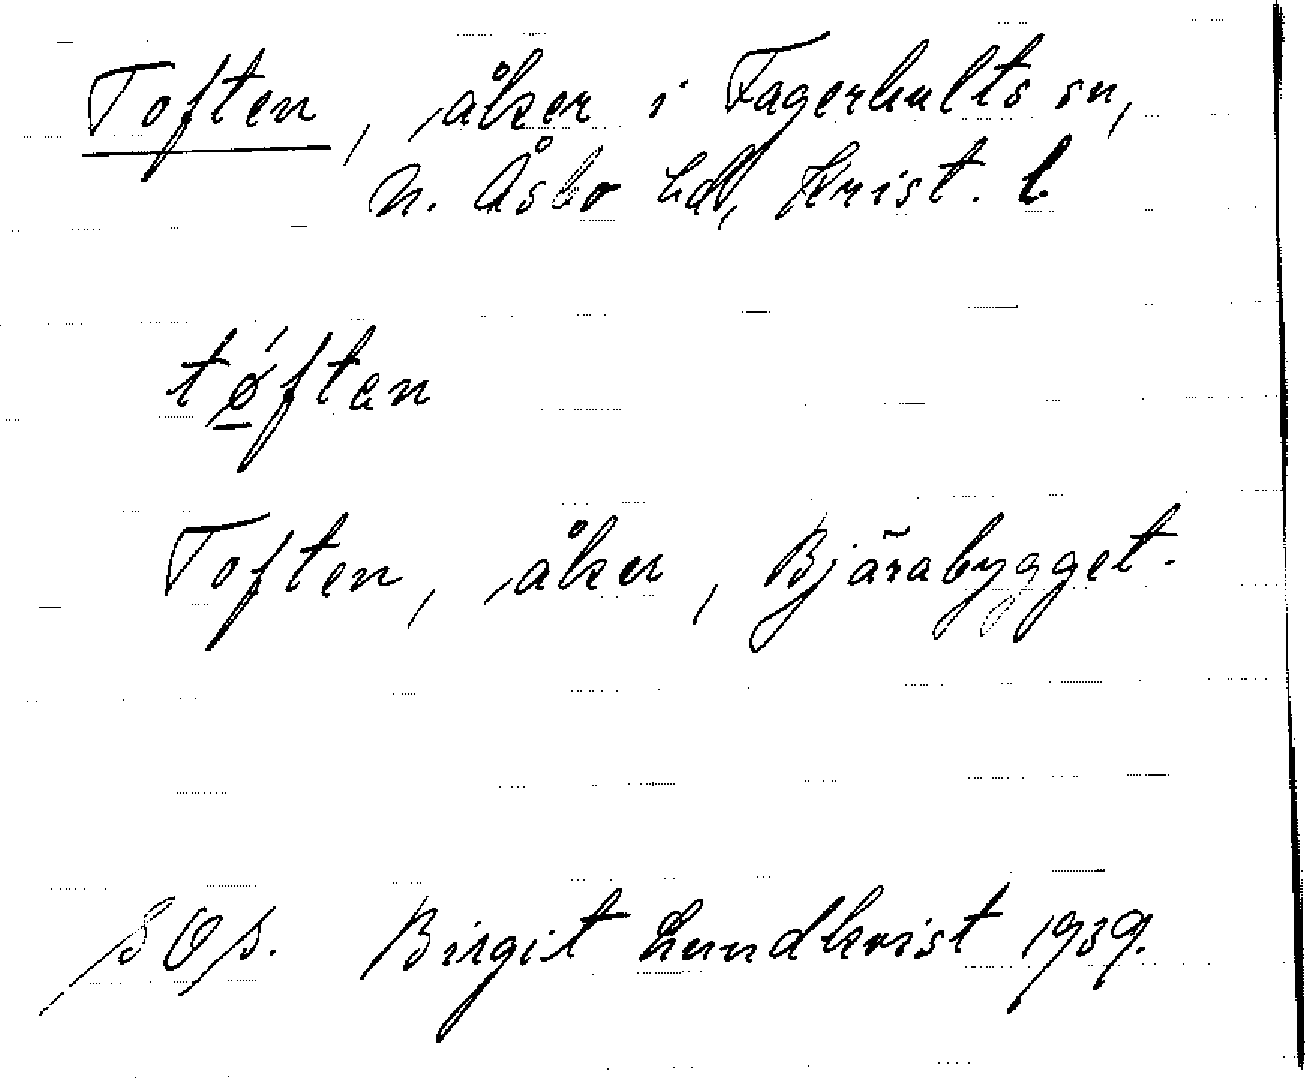 Toften, åker i Fagerhults sn,
N. Åsbo hd, Krist. l
tǿften
Toften, åker, Bjärabygget.
Birgit Lundkvist 1939.